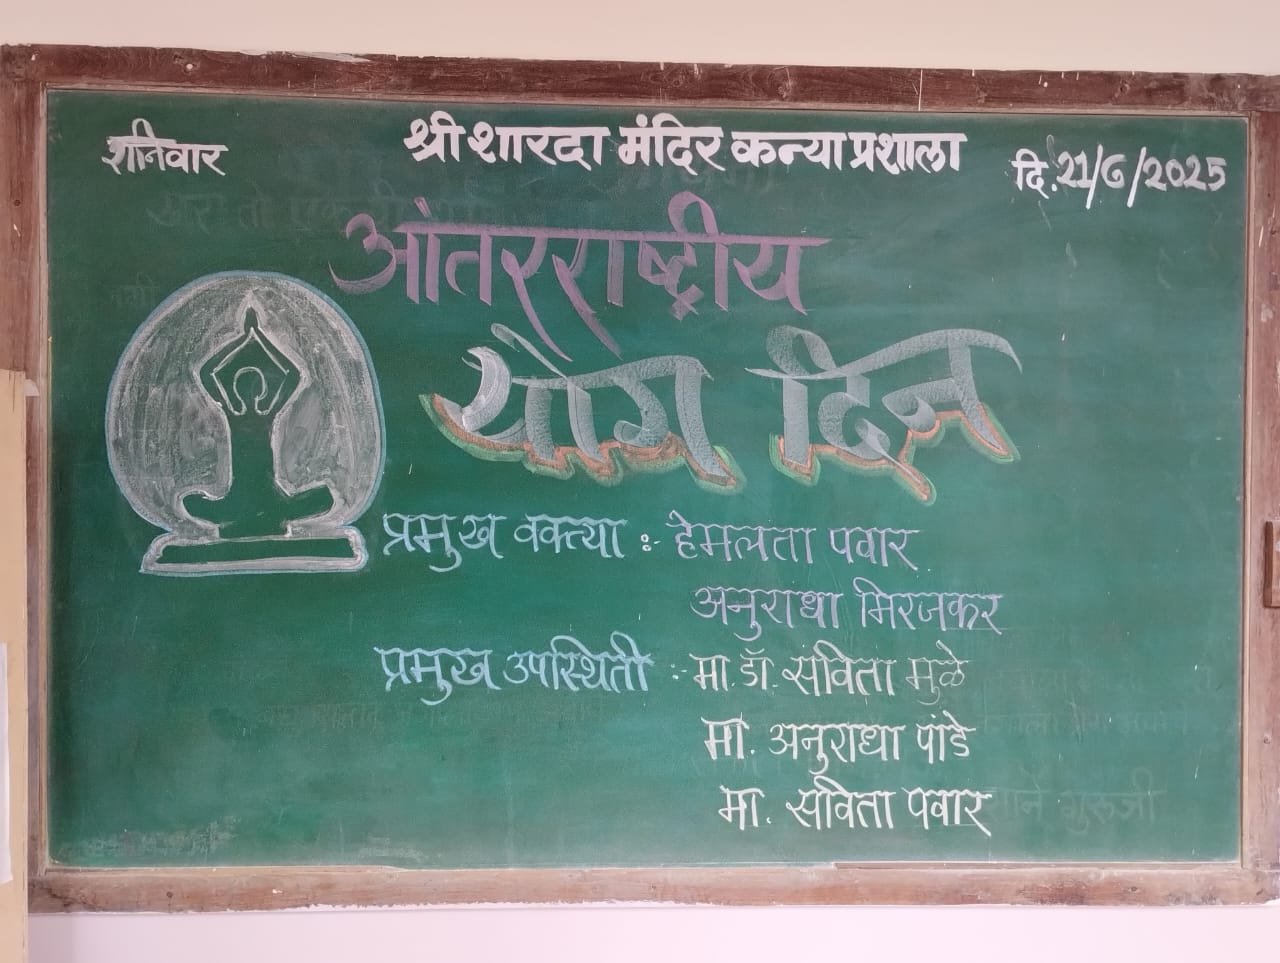 शनिवार
श्री शारदा मंदिर कन्या प्रशाला
दि. 21/6/2025
आंतरराष्ट्रीय
योग दिन
प्रमुख वक्त्या :- हेमलता पवार
अनुराधा मिरजकर
प्रमुख उपस्थिती :- मा. डॉ. सविता मुळे
मा. अनुराधा पांडे
मा. सविता पवार